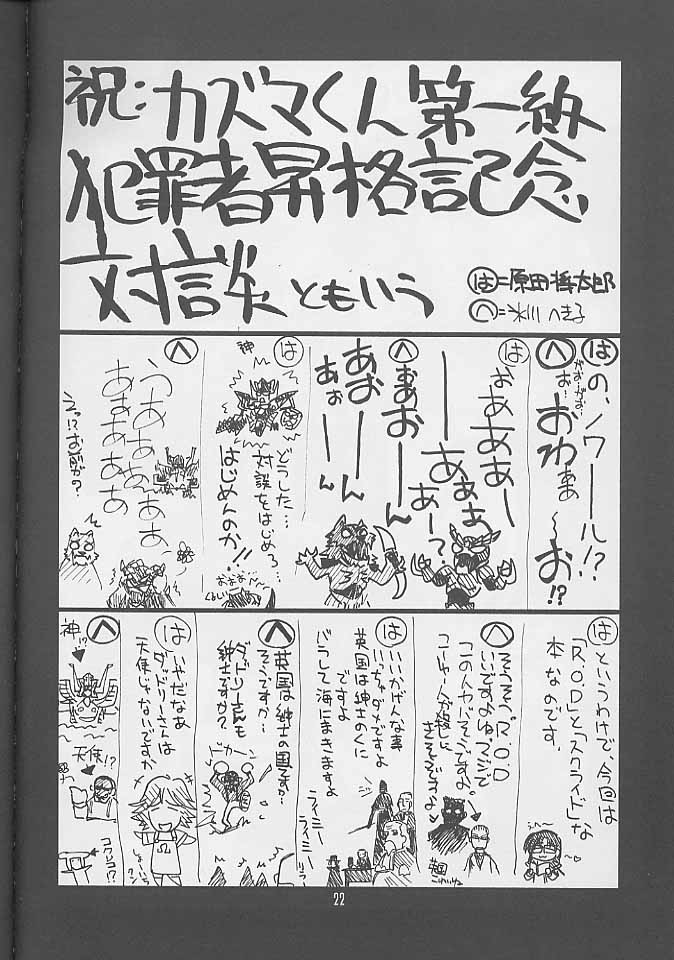 祝：カズマくん第一級
犯罪者昇格記念
対談ともいう
は=原田将太郎
へ=氷川へきる
は
の、ノワール!?
へ
がおーがお
お…おわああ〜お!?
は
おああああー
ーあああ
あー?
へ
おあおーーん
あおーーん
あぉーん
は
神
どうした…
対談をはじめろ…
はじめんのか!!
おおお…
へ
うああああああ
あああああああ
えっ!?お前が?
は
というわけで、今回は
「R.O.D」と「スクライド」な
本なのです。
へ
そうそう。"R.O.D
いいですよねマジで
この人ヤバそうですよ。
英国
こわいね
は
いいかげんな事
いっちゃダメですよ
英国は紳士のくに
ですよ
バラして海にまきますよ
へ
英国は紳士の国ですか…
そうですか…
ダッドリーさんも
紳士ですか?
ドカーン
は
いやだなあ
ダッドリーさんは
天使じゃないですか
へ
神!?
天使!?
コワレコ!?
22